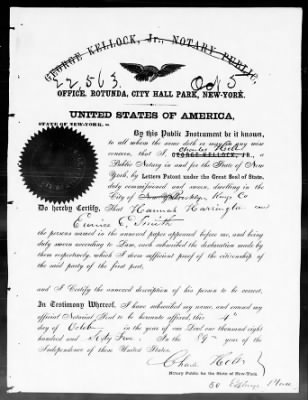 GEORGE KELLOCK, Jr., NOTARY PUBLIC,
22563 Oct 5
OFFICE, ROTUNDA, CITY HALL PARK, NEW-YORK.
UNITED STATES OF AMERICA,
STATE OF NEW-YORK, ss.
By this Public Instrument be it known,
to all whom the same doth or may in any way
concern, that I, Charles
GEORGE KELLOCK, JR.,
Public Notary in and for the State of New
York, by Letters Patent under the Great Seal of State,
duly commissioned and sworn, dwelling in the
City of Brooklyn Kings Co
Do hereby Certify, That Hannah Harrington and
Eunice C. Smith
the persons named in the annexed paper appeared before me, and being
duly sworn according to Law, each subscribed the declaration made by
them respectively, which I deem sufficient proof of the citizenship of
the said party of the first part.
and I Certify the annexed description of his person to be correct.
In Testimony Whereof, I have subscribed my name, and caused my
official Notarial Seal to be hereunto affixed, this 4th
day of October in the year of our Lord one thousand eight
hundred and Sixty Five: In the 89th year of the
Independence of these United States.
Notary Public for the State of New-York
50 Exchange Place